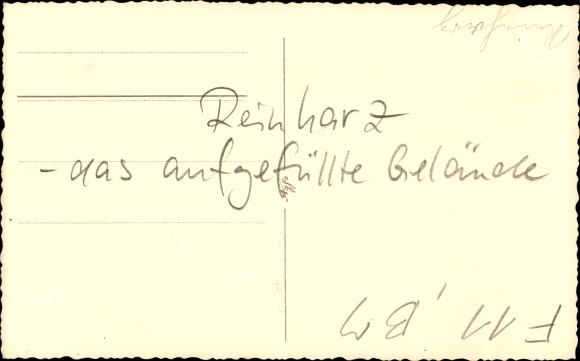 Reinharz
- das aufgefüllte Gelände
F 11, B 9